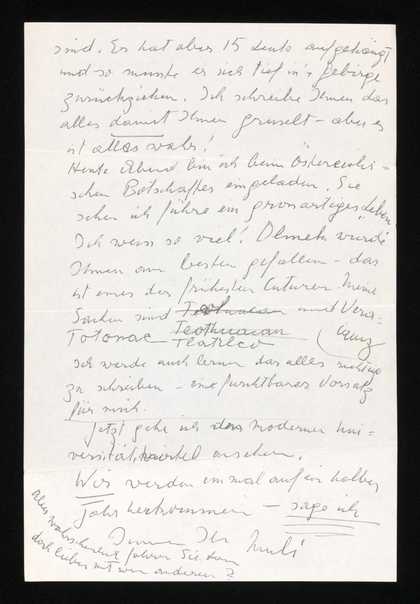 sind. Es hat aber 15 Leute aufgehängt
und so musste er sich tief in's Gebirge
zurückziehen. Ich schreibe Ihnen das
alles damit Ihnen gruselt – aber es
ist alles wahr!
Heute Abend bin ich beim Österreichi-
schen Botschafter eingeladen. Sie
sehen ich führe ein grossartiges Leben.
Ich weiss so viel! Olmek würde
Ihnen am besten gefallen – das
ist eines der frühesten Culturen. Meine
Sachen sind Teohuacan und Vera-
Totonac Teothuacan Cruz
Tlatelco
Ich werde auch lernen das alles richtig
zu schreiben – ein furchtbarer Vorsatz
für mich.
Jetzt gehe ich das moderne Uni-
versitätsviertel ansehen.
Wir werden einmal auf ein halbes
Jahr herkommen – sage ich
Immer Ihr
Aber wahrscheinlich fahren Sie dann
doch lieber mit wem anderen?